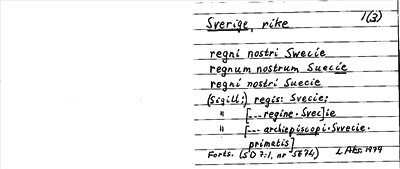 Sverige, rike 1(3)
regni nostri Swecie
regnum nostrum Suecie
regni nostri Suecie
(Sigill:) regis: Svecie;
" [--- regine · Svec]ie
" [--- archiepiscopi · Svvecie ·
primatis]
Forts. (SD 7:1, nr 5674) L Abs. 1979